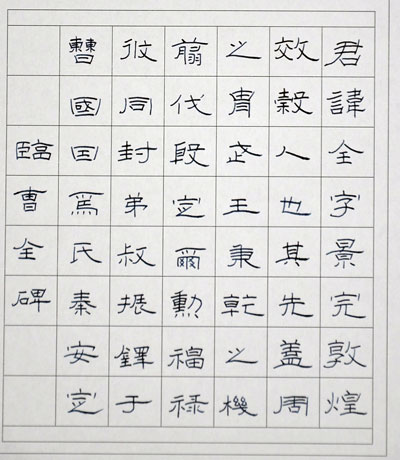 君諱全字景完敦煌
效穀人也其先蓋周
之胄武王秉乾之機
翦伐殷定爾勳福祿
攸同封弟叔振鐸于
曹國因爲氏秦安定
臨曹全碑